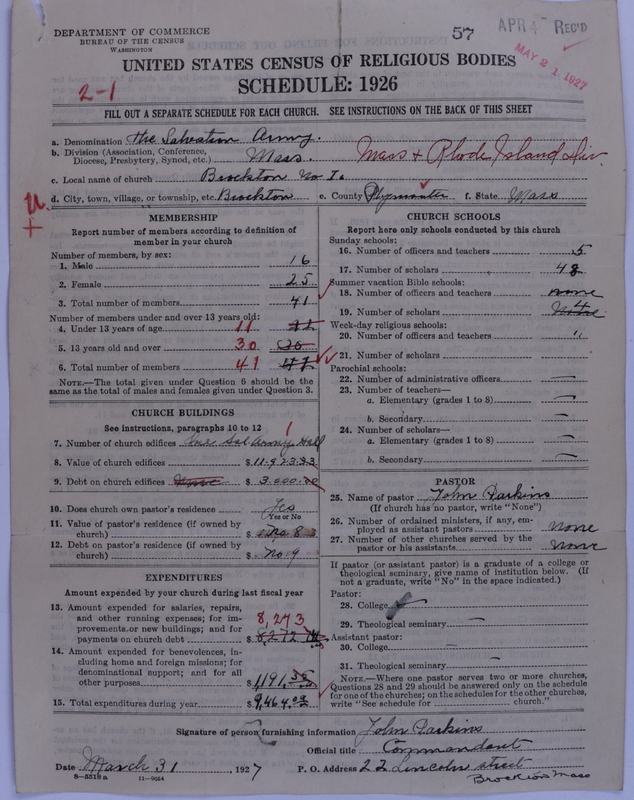 DEPARTMENT OF COMMERCE
BUREAU OF THE CENSUS
WASHINGTON
57
APR 4 REC'D
MAY 21 1927
UNITED STATES CENSUS OF RELIGIOUS BODIES
SCHEDULE: 1926
2-1
FILL OUT A SEPARATE SCHEDULE FOR EACH CHURCH. SEE INSTRUCTIONS ON THE BACK OF THIS SHEET
a. Denomination The Salvation Army.
b. Division (Association, Conference, Diocese, Presbytery, Synod, etc.) Mass. Mass + Rhode Island Div.
c. Local name of church Brockton No I.
d. City, town, village, or township, etc. Brockton e. County Plymouth f. State Mass
MEMBERSHIP
Report number of members according to definition of
member in your church
Number of members, by sex:
1. Male 16
2. Female 25
3. Total number of members 41
Number of members under and over 13 years old:
4. Under 13 years of age 11
5. 13 years old and over 30 30
6. Total number of members 41 41
NOTE.—The total given under Question 6 should be the
same as the total of males and females given under Question 3.
CHURCH BUILDINGS
See instructions, paragraphs 10 to 12
7. Number of church edifices One Sal Army Hall 1
8. Value of church edifices $11.923.33
9. Debt on church edifices None $3.000.00
10. Does church own pastor's residence Yes
Yes or No
11. Value of pastor's residence (if owned by
church) $ No 8
12. Debt on pastor's residence (if owned by
church) $ No 9
EXPENDITURES
Amount expended by church during last fiscal year
13. Amount expended for salaries, repairs,
and other running expenses; for im-
provements or new buildings; and for
payments on church debt 8,273 $8272
14. Amount expended for benevolences, in-
cluding home and foreign missions; for
denominational support; and for all
other purposes $1191.35
15. Total expenditures during year $9,464.09
CHURCH SCHOOLS
Report here only schools conducted by this church
Sunday schools:
16. Number of officers and teachers 5
17. Number of scholars 48
Summer vacation Bible schools:
18. Number of officers and teachers none
19. Number of scholars
Week-day religious schools:
20. Number of officers and teachers "
21. Number of scholars —
Parochial schools:
22. Number of administrative officers —
23. Number of teachers—
a. Elementary (grades 1 to 8) —
b. Secondary —
24. Number of scholars—
a. Elementary (grades 1 to 8) —
b. Secondary —
PASTOR
25. Name of pastor John Parkins
(If church has no pastor, write "None")
26. Number of ordained ministers, if any, em-
ployed as assistant pastors none
27. Number of other churches served by the
pastor or his assistants none
If pastor (or assistant pastor) is a graduate of a college or
theological seminary, give name of institution below. (If
not a graduate, write "No" in the space indicated.)
Pastor:
28. College
29. Theological seminary —
Assistant pastor:
30. College —
31. Theological seminary —
NOTE.—Where one pastor serves two or more churches,
Questions 28 and 29 should be answered only on the schedule
for one of the churches; on the schedules for the other churches,
write "See schedule for ........ church."
Signature of person furnishing information John Parkins
Official title Commandant
Date March 31 1927 P. O. Address 22 Lincoln street
Brockton Mass
8—5518a 11—9054